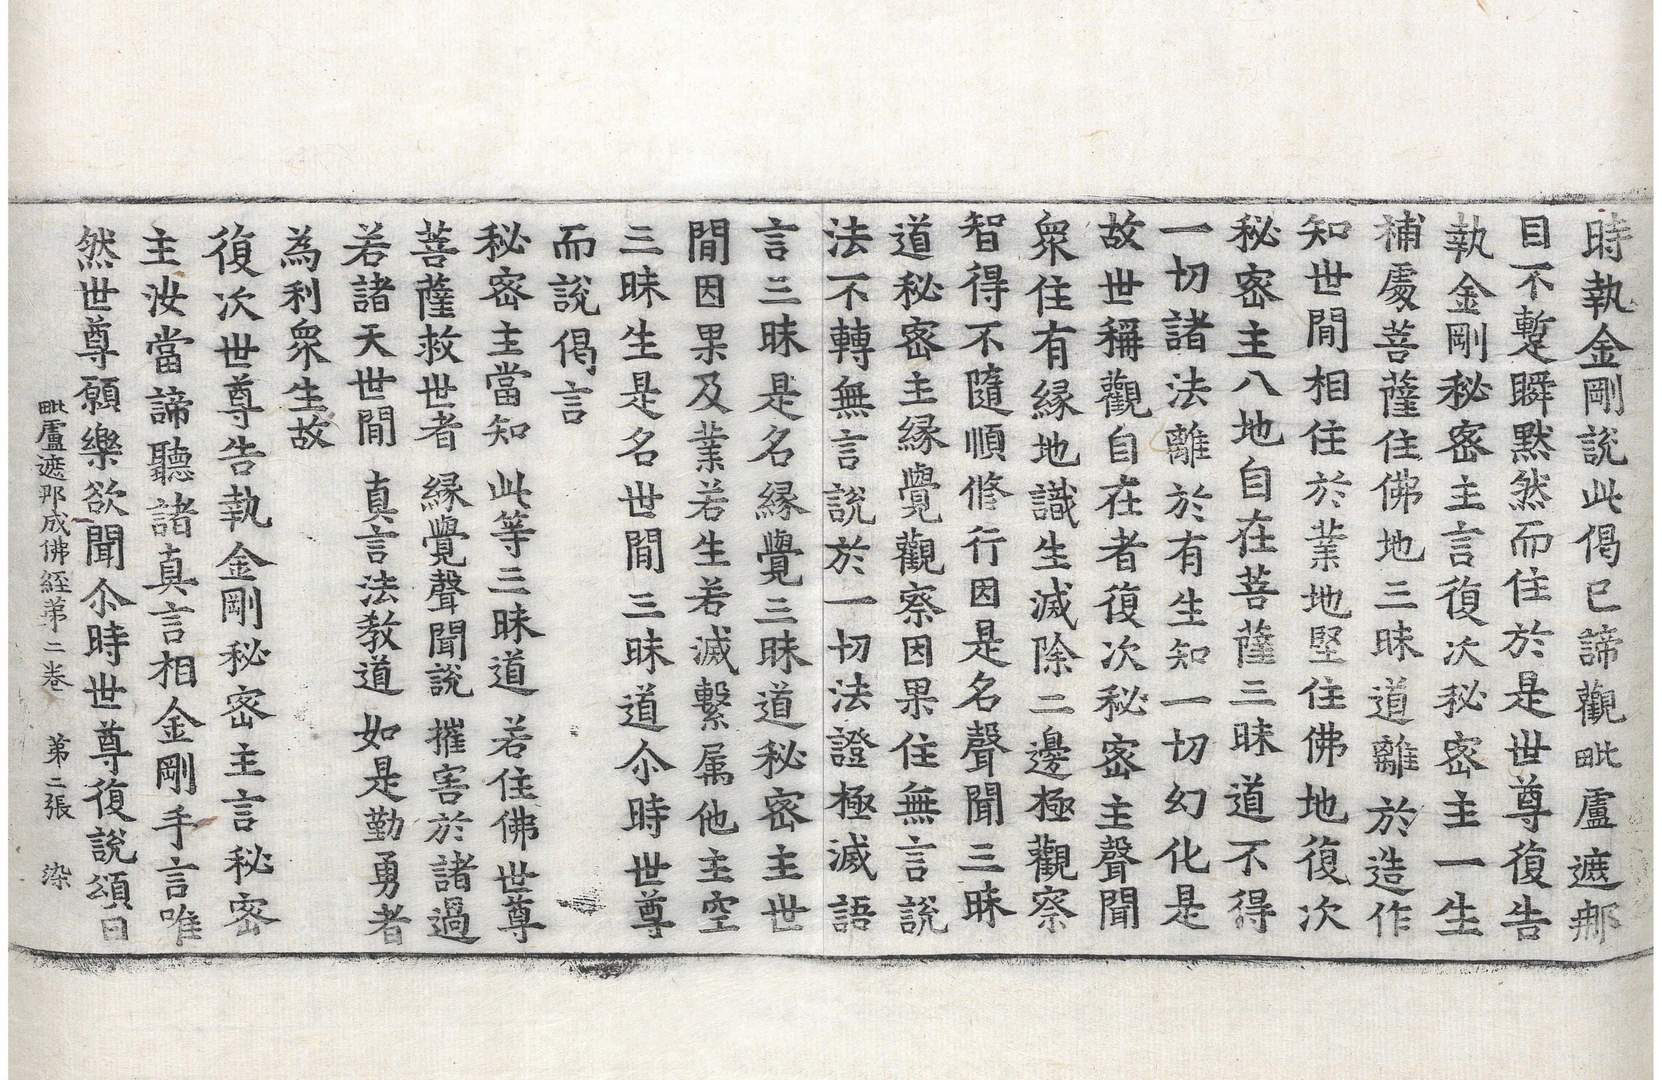 時執金剛說此偈已諦觀毗盧遮那
目不蹔瞬默然而住於是世尊復告
執金剛秘密主言復次秘密主一生
補處菩薩住佛地三昧道離於造作
知世間相住於業地堅住佛地復次
秘密主八地自在菩薩三昧道不得
一切諸法離於有生知一切幻化是
故世稱觀自在者復次秘密主聲聞
衆住有緣地識生滅除二邊極觀察
智得不隨順修行因是名聲聞三昧
道秘密主緣覺觀察因果住無言說
法不轉無言說於一切法證極滅語
言三昧是名緣覺三昧道秘密主世
間因果及業若生若滅繫属他主空
三昧生是名世間三昧道尒時世尊
而說偈言
秘密主當知 此等三昧道 若住佛世尊
菩薩救世者 緣覺聲聞說 摧害於諸過
若諸天世間 真言法教道 如是勤勇者
為利衆生故
復次世尊告執金剛秘密主言秘密
主汝當諦聽諸真言相金剛手言唯
然世尊願樂欲聞尒時世尊復說頌曰
毗盧遮那成佛經第二卷 第二張 染